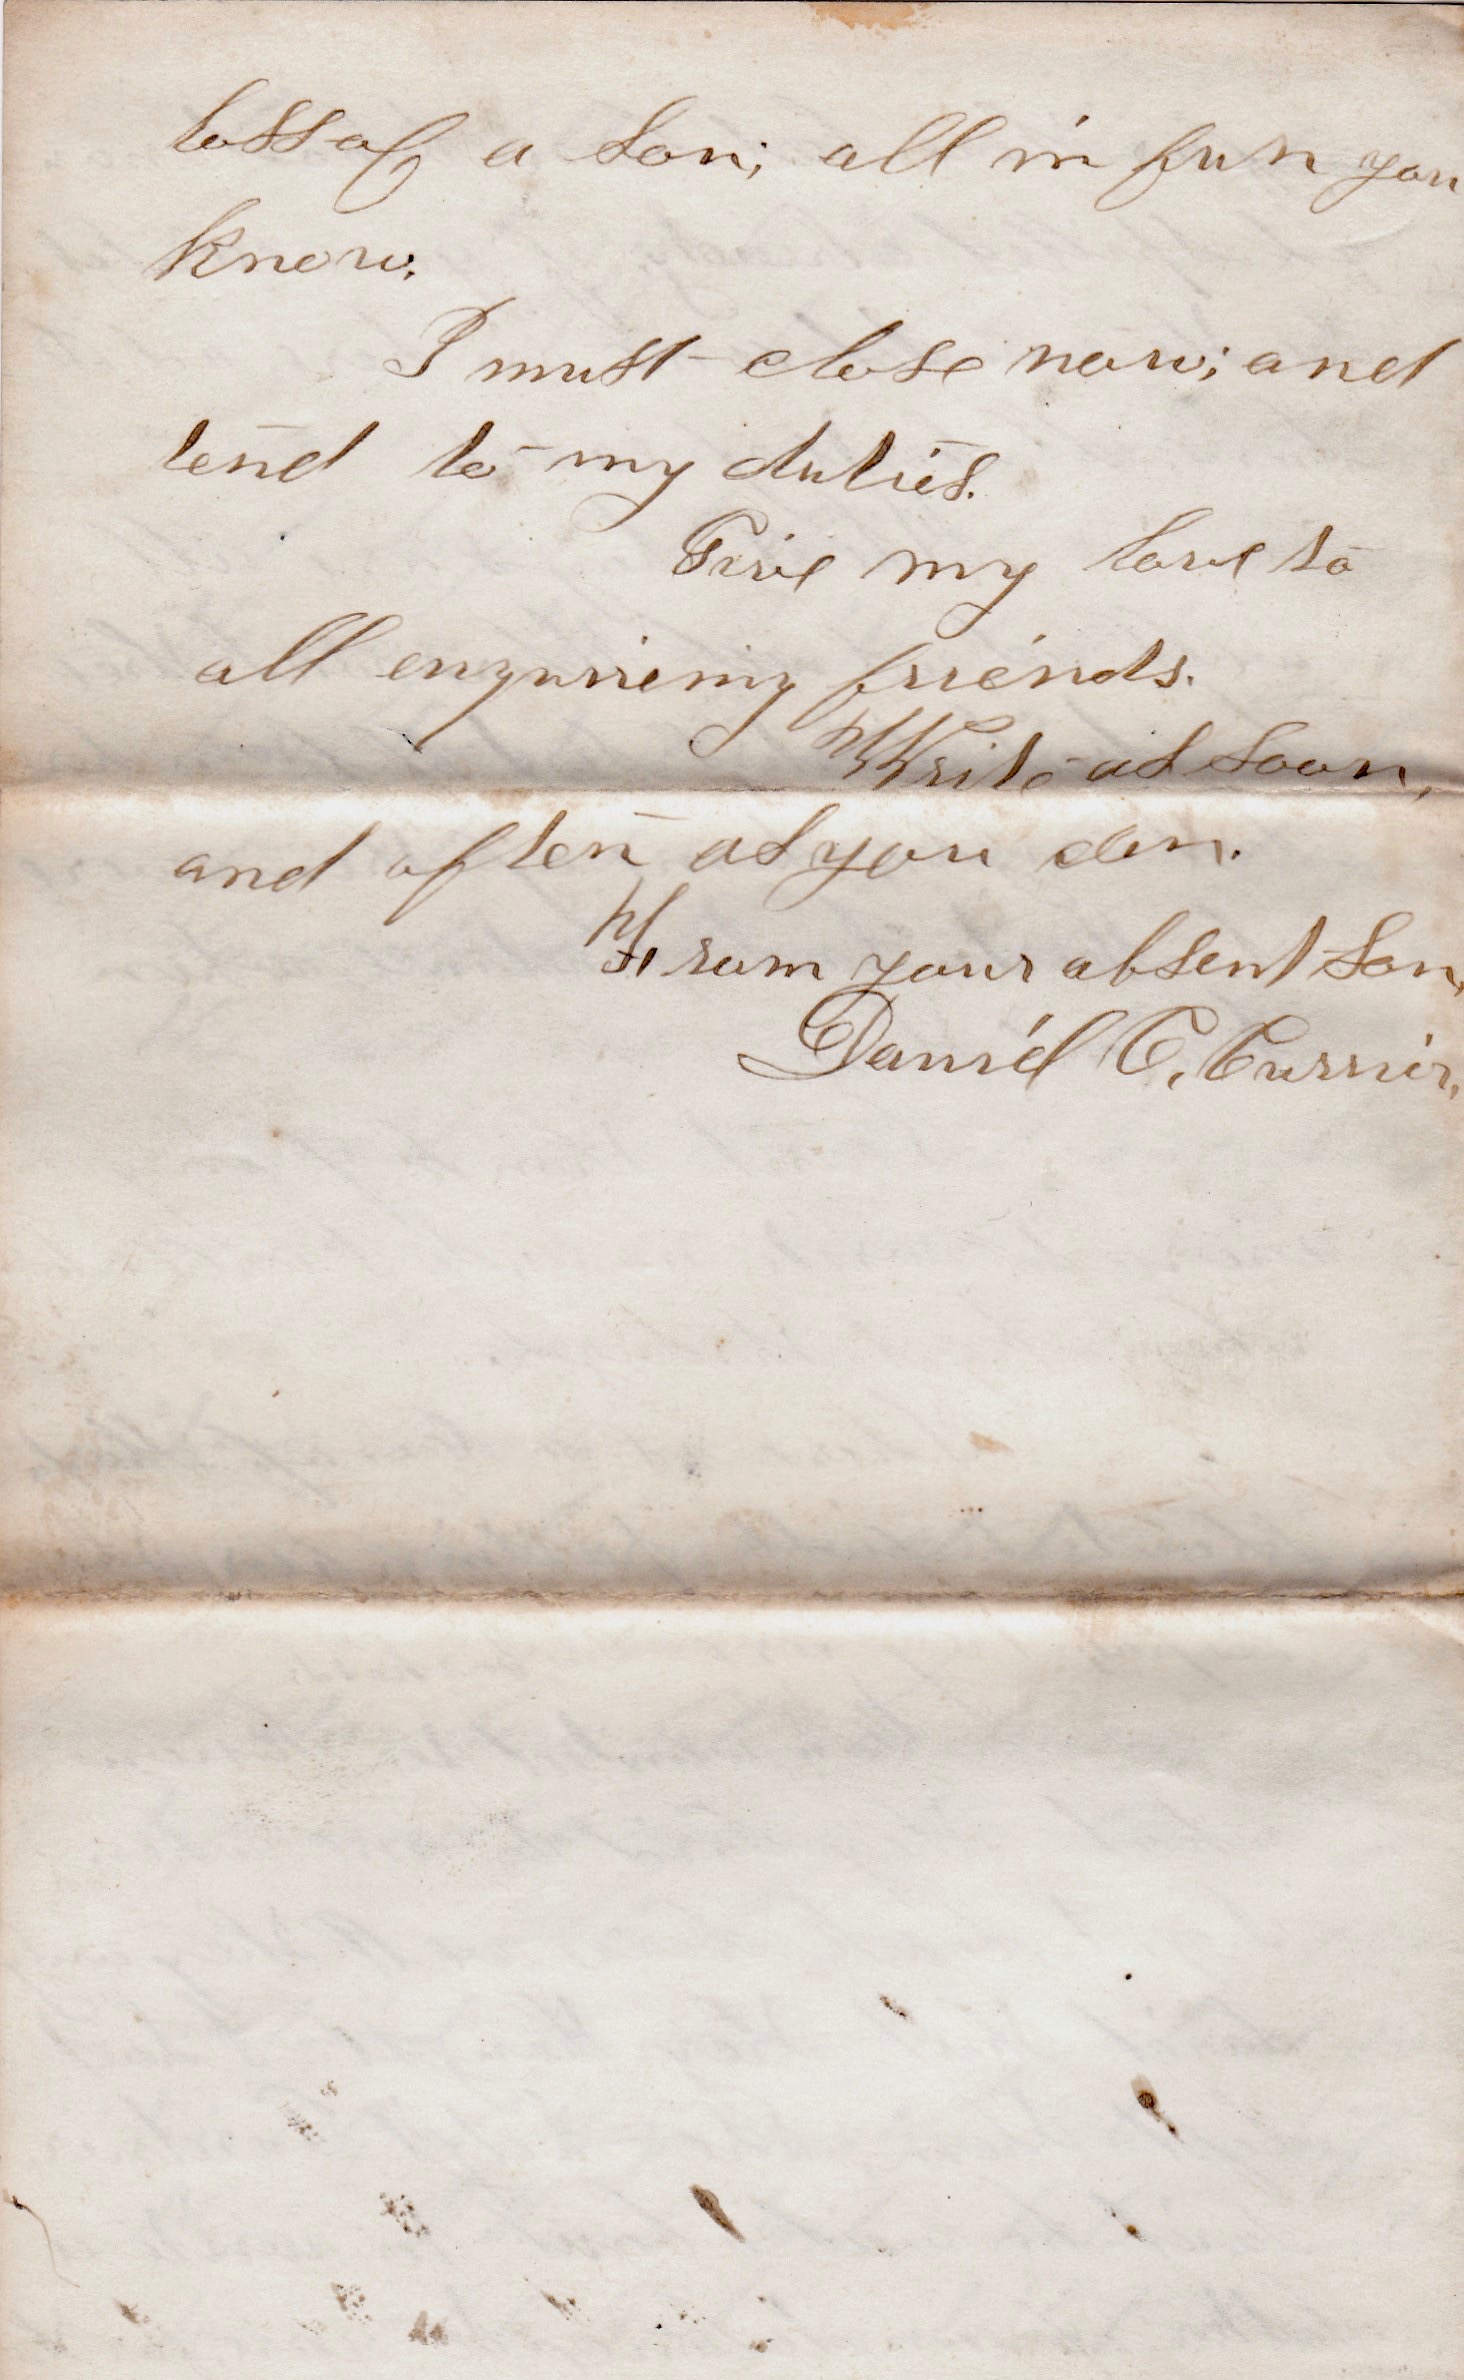 loss of a son; all in fun you
know.
I must close now; and
tend to my duties.
Give my love to
all enquireing friends.
Write as soon,
and often as you can.
From your absent son,
Daniel C. Currier,